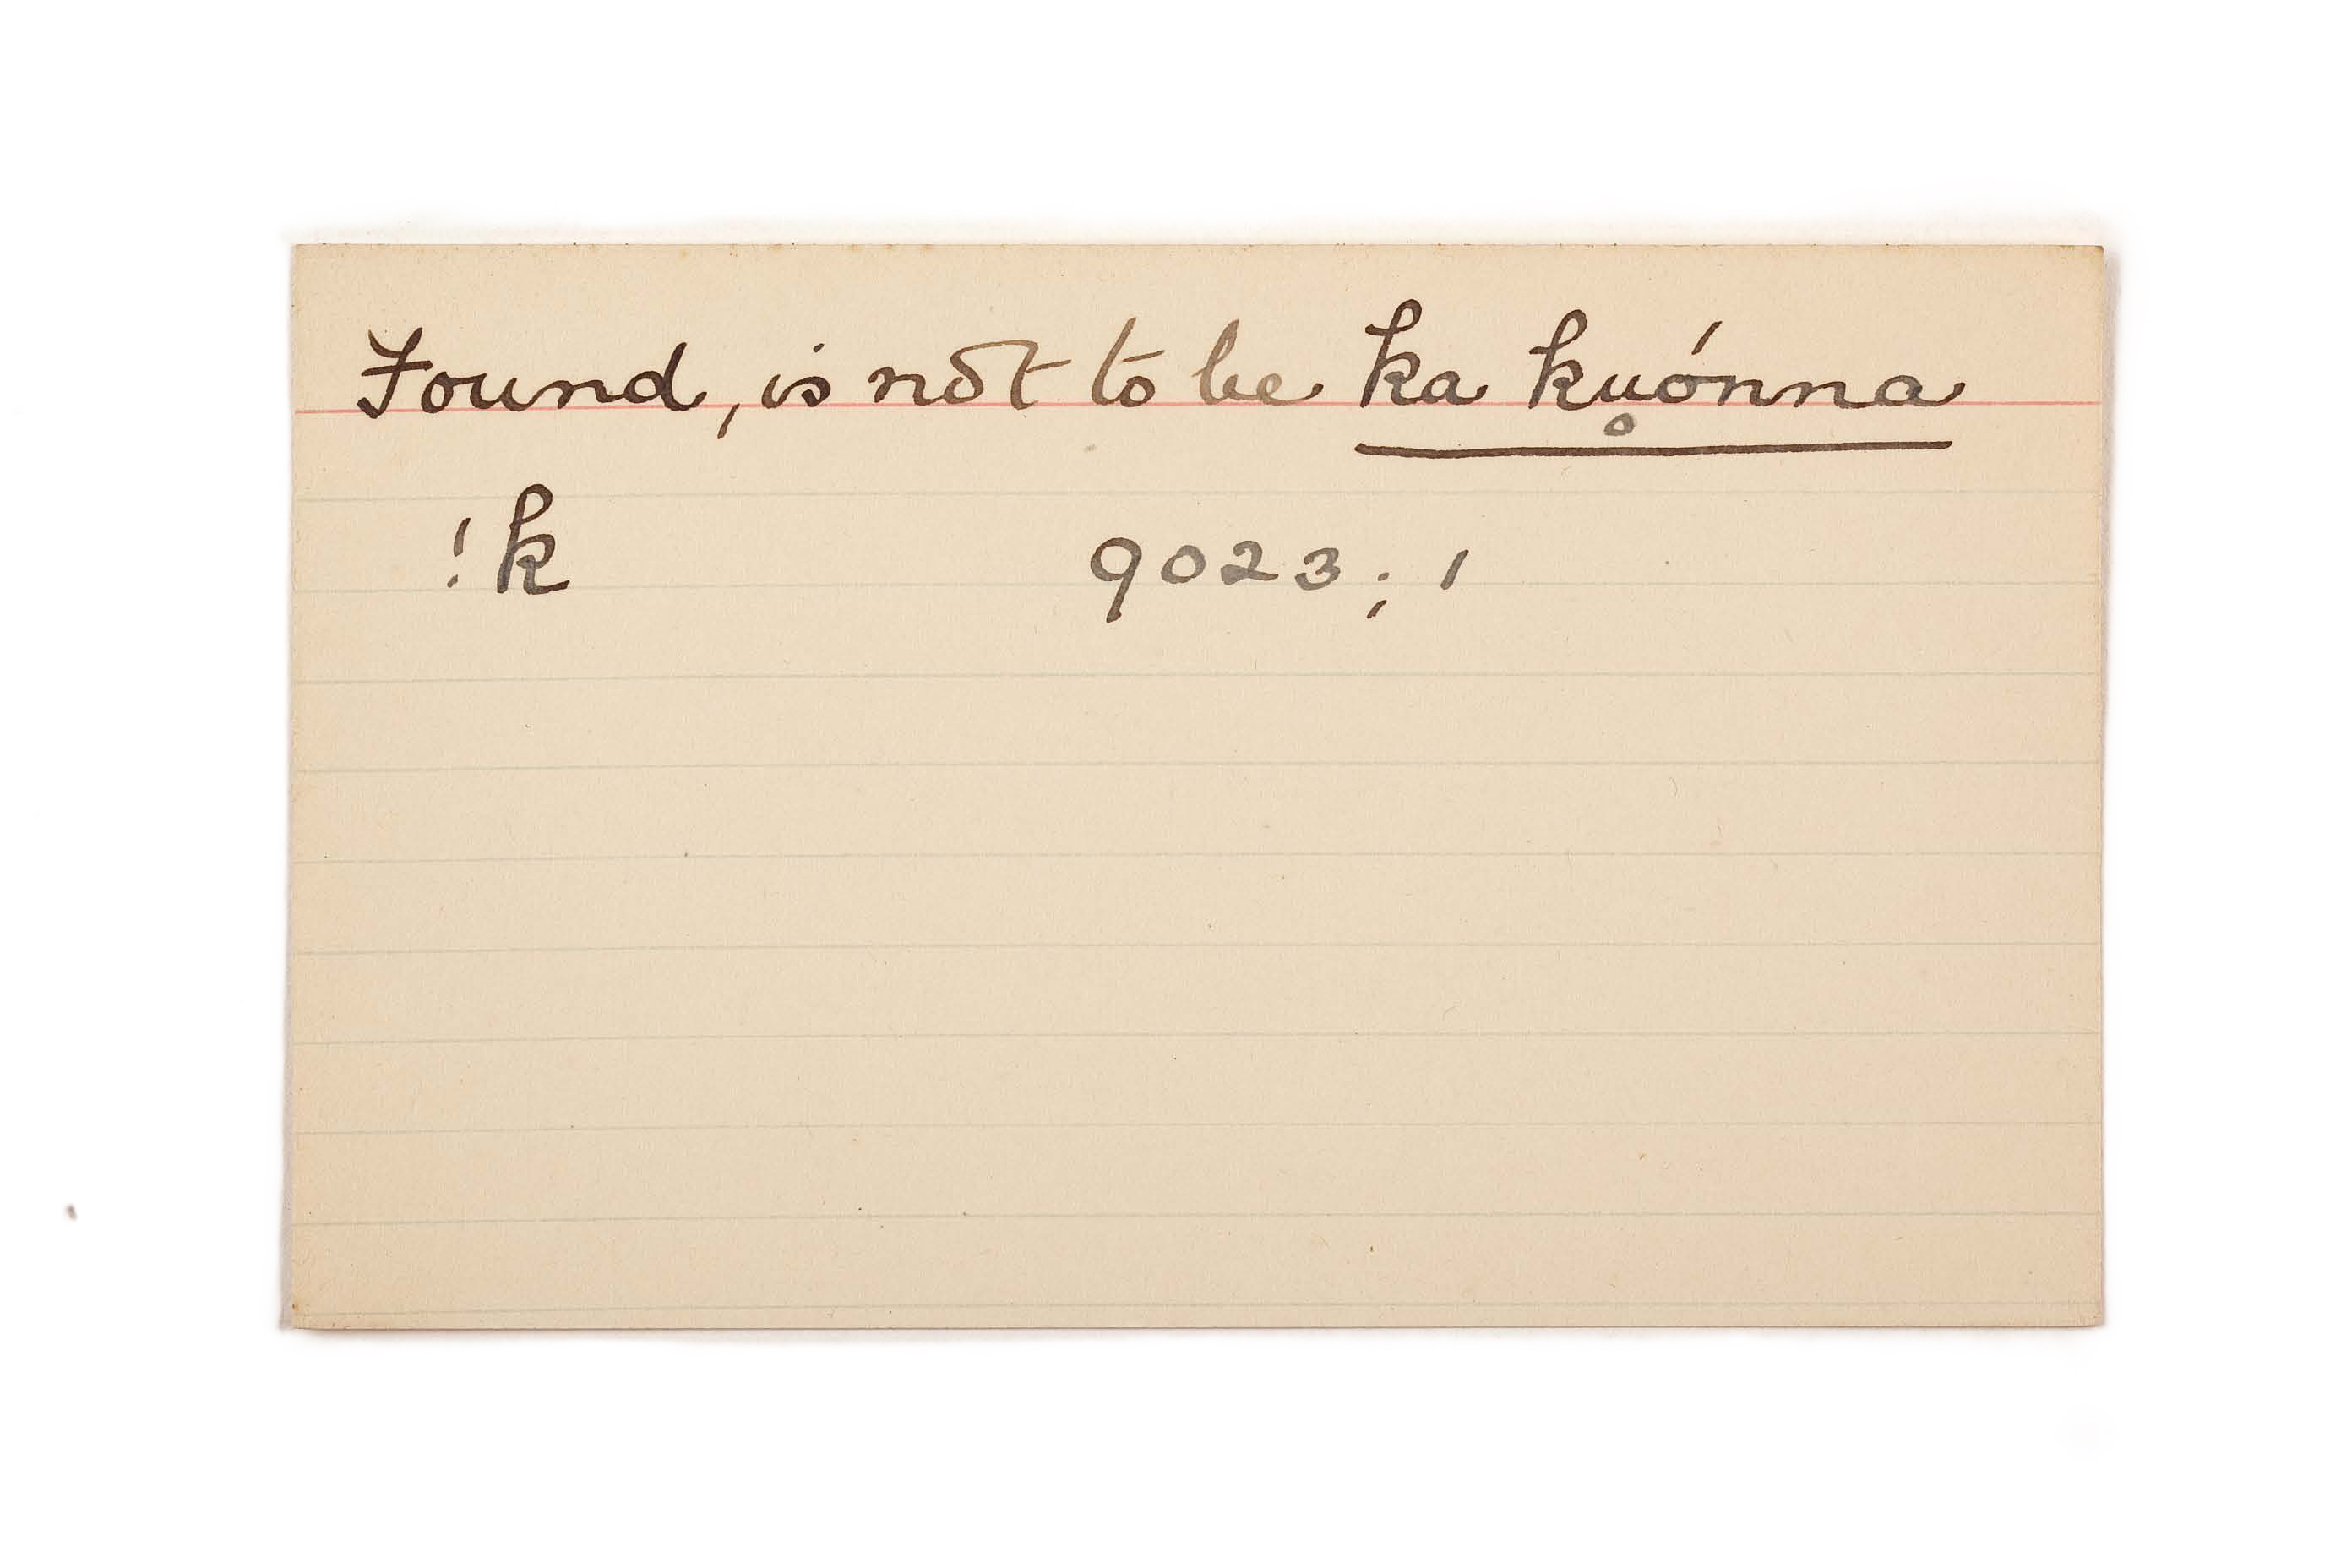 Found, is not to be ka ku̥ónna
!k 9023; 1